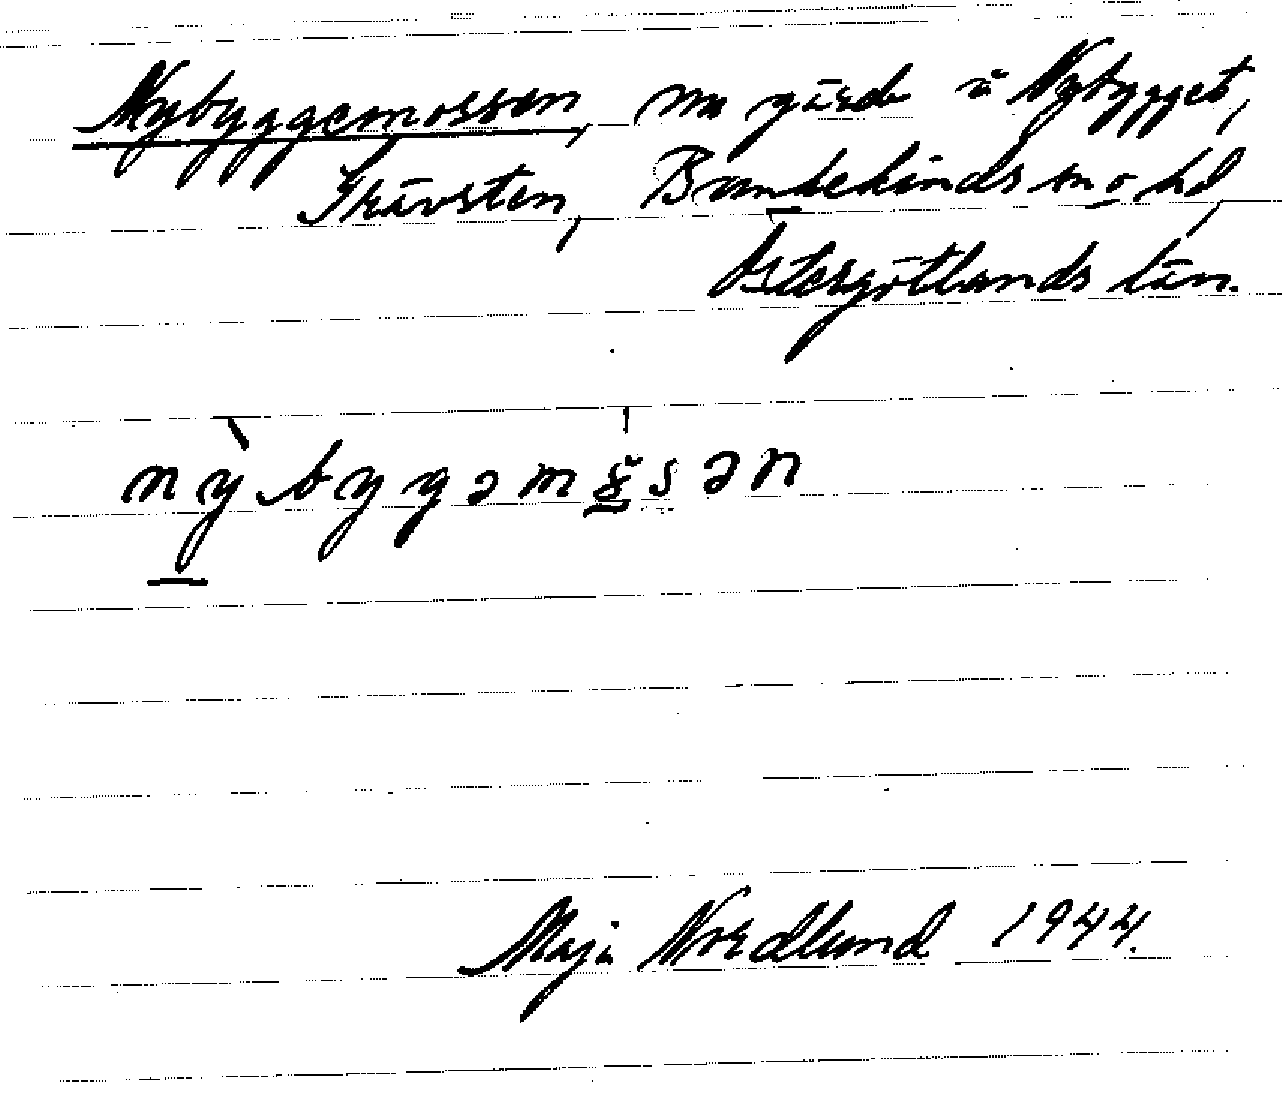 Nybyggemossen, nu gärde i Nybygget,
Skävsten, Bankekinds sn o hd,
Östergötlands län.
nỳbygəmsən
Maja Nordlund 1944.